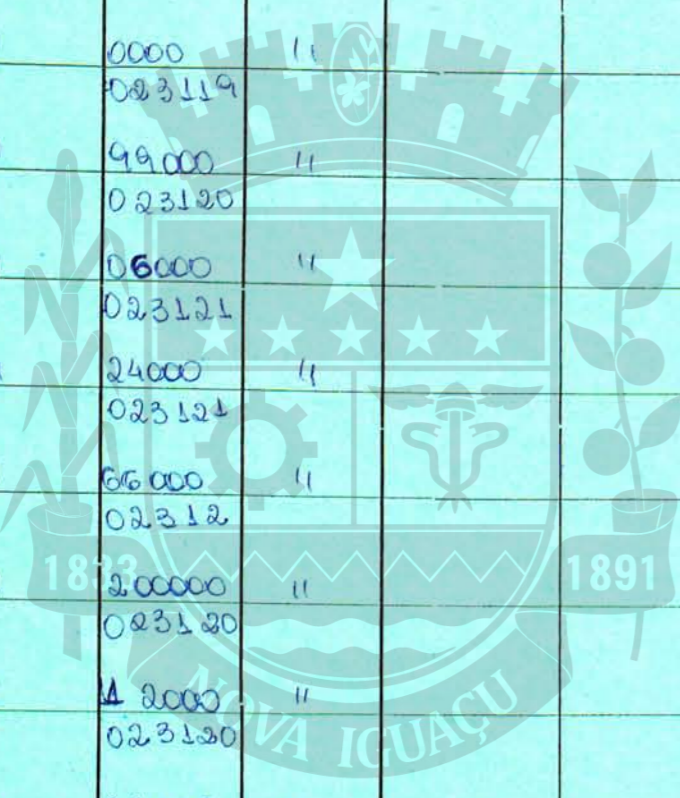 0000 "
023119
99000 "
023120
06000 "
023121
24000 "
023121
66000 "
02312
200000 "
023120
2000 "
023120
1833
1891
NOVA IGUAÇU